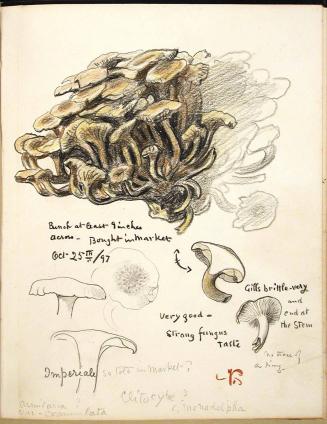 Bunch at least 9 inches
across - Bought in Market
Oct - 25th/97
Gills brittle - very
and
end at
the Stem
no trace of
a ring.
Very good -
Strong fungus
Taste
Imperiale so told in market?
Clitocybe?
C. monadelpha
Armillaria?